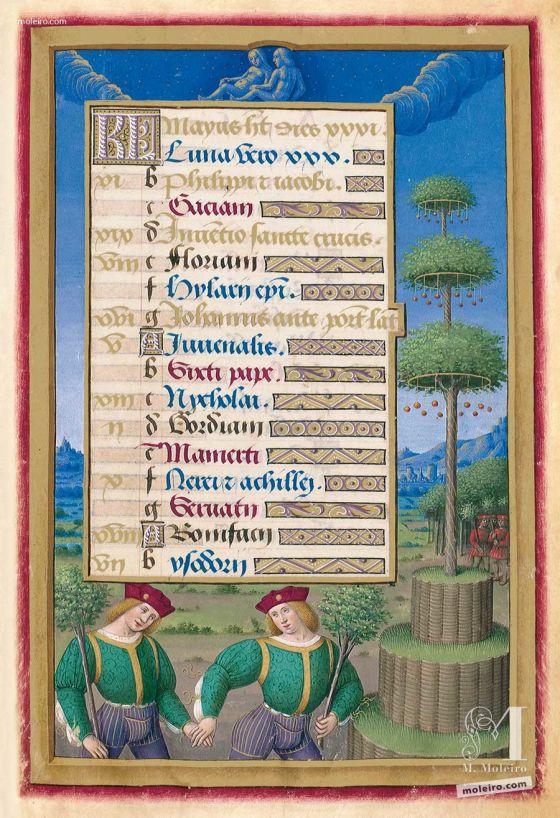 moleiro.com
KL Mayus ht dies xxxi.
Luna vero xxx.
vi b Philippi t iacobi.
c Gaciani
xix d Inventio sancte crucis.
viii e Floriani
f Hylarii epi.
xvi g Johannis ante port lat
v A Iuvenalis.
b Sixti pape.
xiii c Nycholai.
ii d Gordiani
e Mamerti
x f Nerei t achillei.
g Servatii
xviii A Bonifacii
vii b ysodorii
M
M. Moleiro
moleiro.com